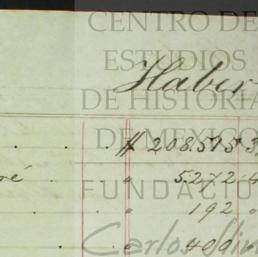 CENTRO DE
ESTUDIOS
Haber
DE HISTORIA
DE MEXICO
$ 208.575 3
ré " 5272 4
FUNDACIÓ
" 192 "
Carlos Slim